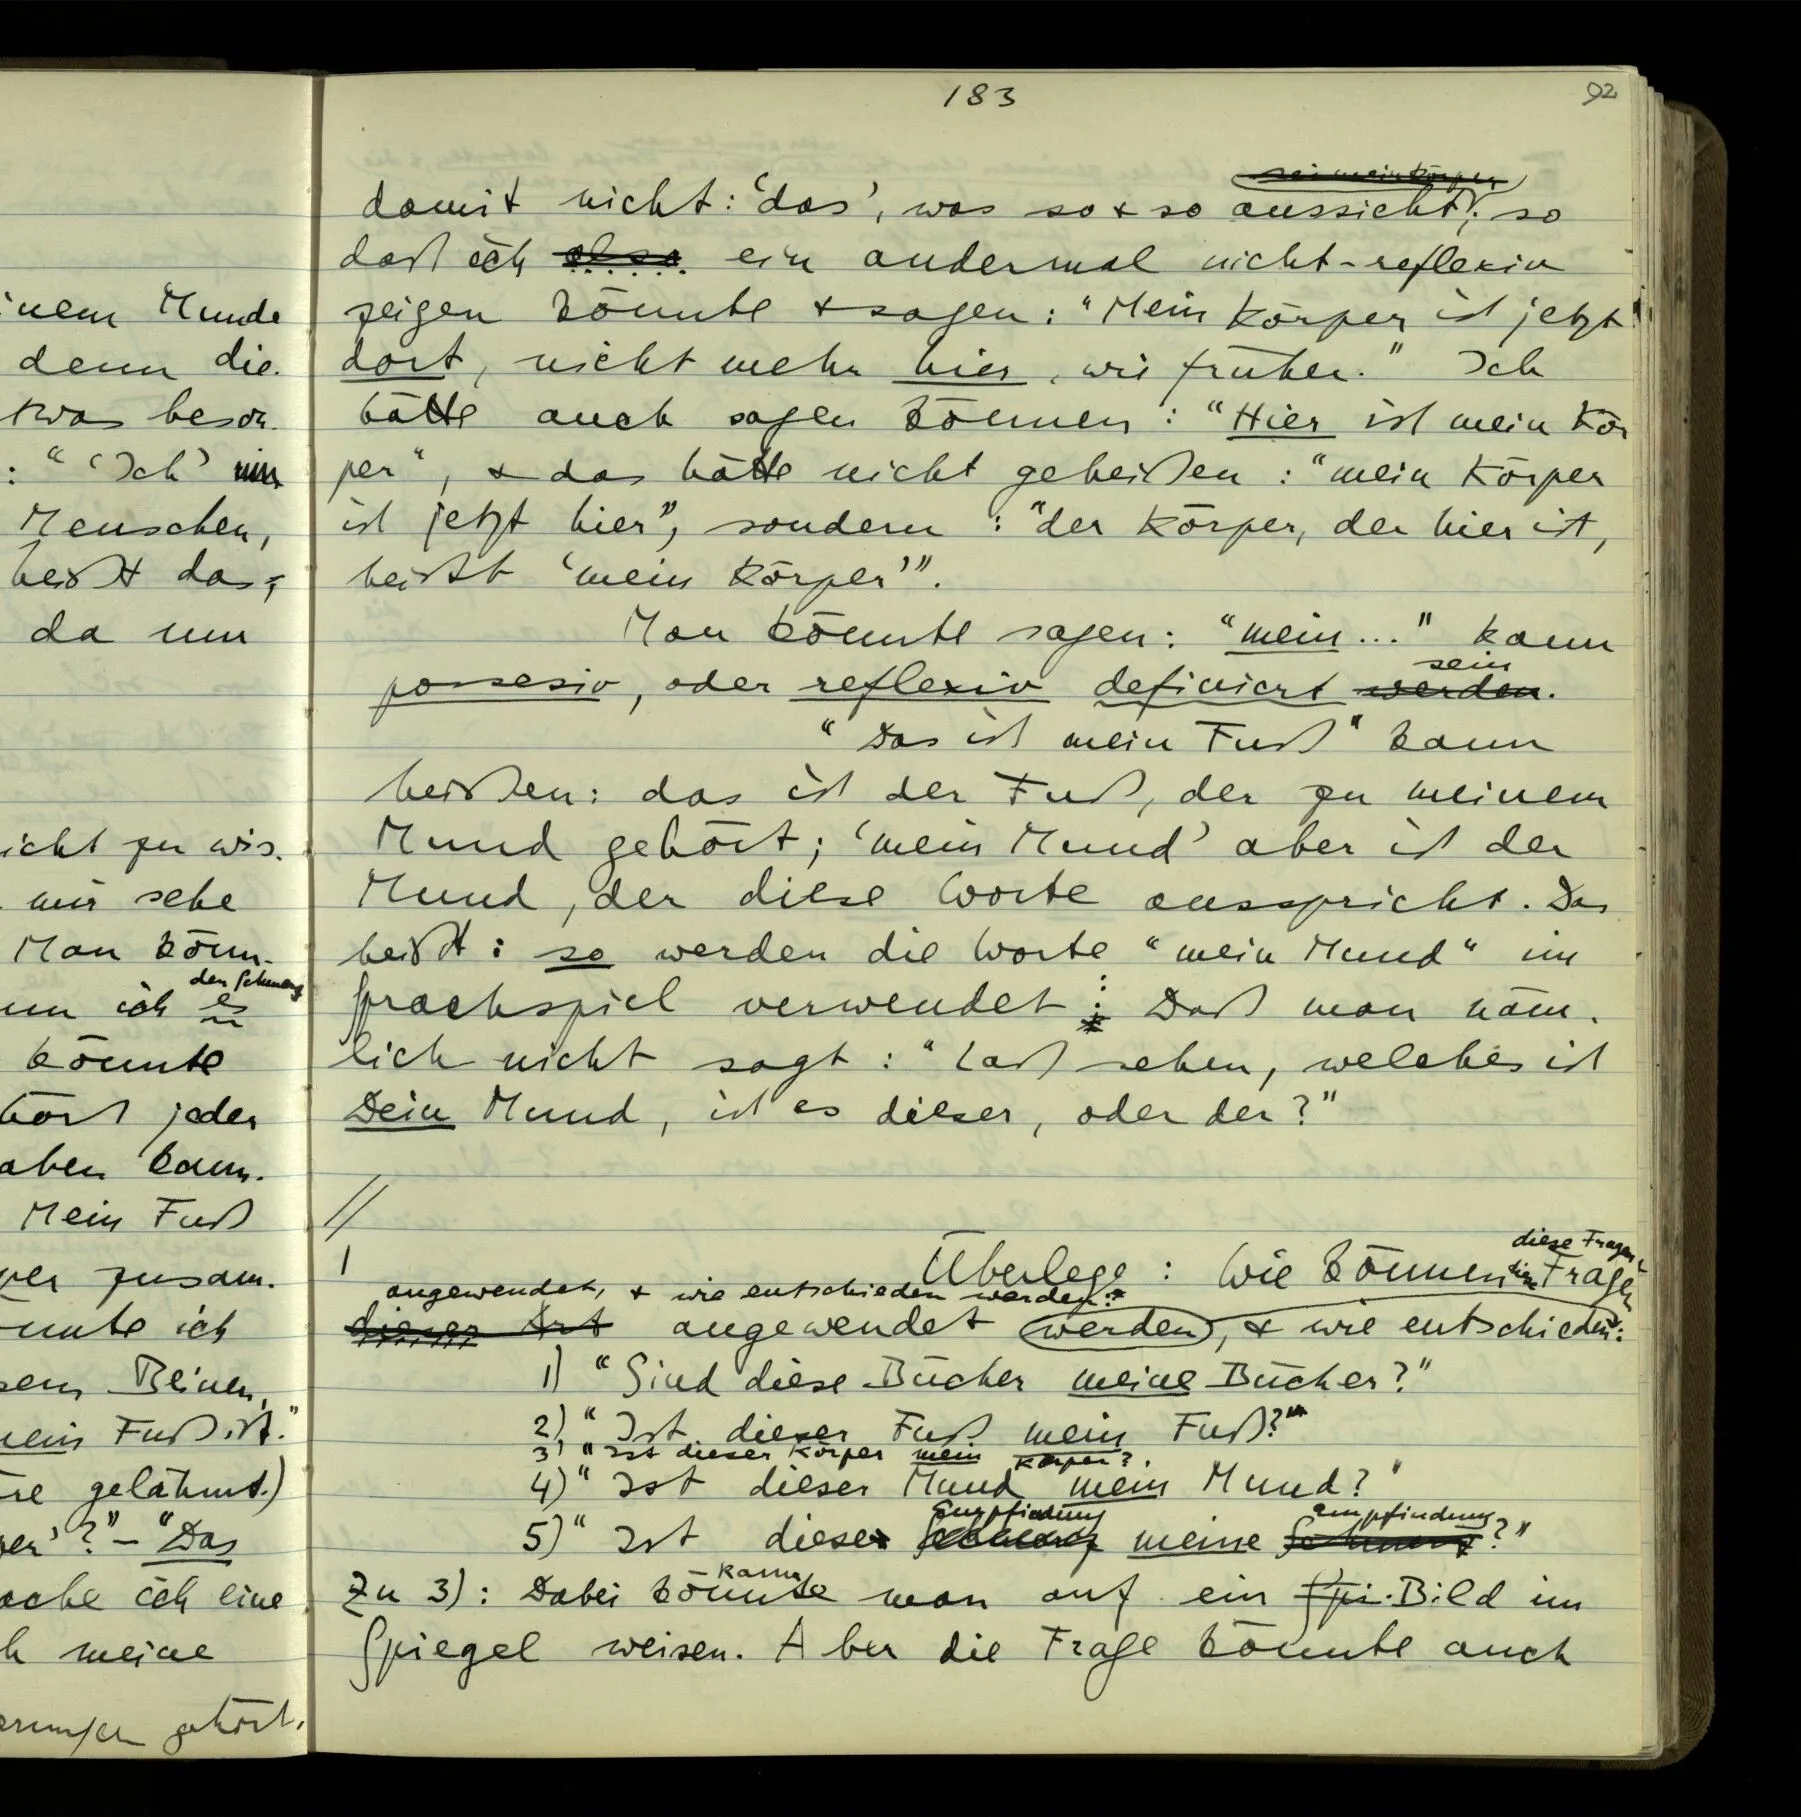 183
92
sei mein Körper
damit nicht: ‘das’, was so + so aussieht; so
daß ich also ein andermal nicht-reflexiv
zeigen könnte + sagen: “Mein Körper ist jetzt
dort, nicht mehr hier, wie früher.” Ich
hätte auch sagen können: “Hier ist mein Kör
per”, + das hätte nicht geheißen: “mein Körper
ist jetzt hier”, sondern: “der Körper, der hier ist,
heißt ‘mein Körper’”.
Man könnte sagen: “mein...” kann
sein
possesiv, oder reflexiv definiert werden.
“Das ist mein Fuß” kann
heißen: das ist der Fuß, der zu meinem
Mund gehört; ‘mein Mund’ aber ist der
Mund, der diese Worte ausspricht. Das
heißt: so werden die Worte “mein Mund” im
Sprachspiel verwendet: Daß man näm-
lich nicht sagt: “Laß sehen, welches ist
Dein Mund, ist es dieser, oder der?”
//
diese Fragen
| Überlege: Wie können diese Fragen
angewendet, + wie entschieden werden:
dieser Art angewendet werden, + wie entschieden:
1) “Sind diese Bücher meine Bücher?”
2) “Ist dieser Fuß mein Fuß?”
3) “Ist dieser Körper mein Körper?
4) “Ist dieser Mund mein Mund?”
Empfindung Empfindung
5) “Ist dieser Schmerz meine Schmerz?”
kann
Zu 3): Dabei könnte man auf ein Spi- Bild im
Spiegel weisen. Aber die Frage könnte auch
inem Munde
denn die
twas beson
: “‘Ich’
Menschen,
heißt das;
da nun
icht zu wis-
mir sehe
Man könn-
den Schmerz
nn ich es
könnte
hört jeder
aben kann.
Mein Fuß
per zusam-
nnte ich
sem Beinen,
mein Fuß ist.”
re gelähmt.)
per’?” – “Das
ache ich eine
h meine
gehört.